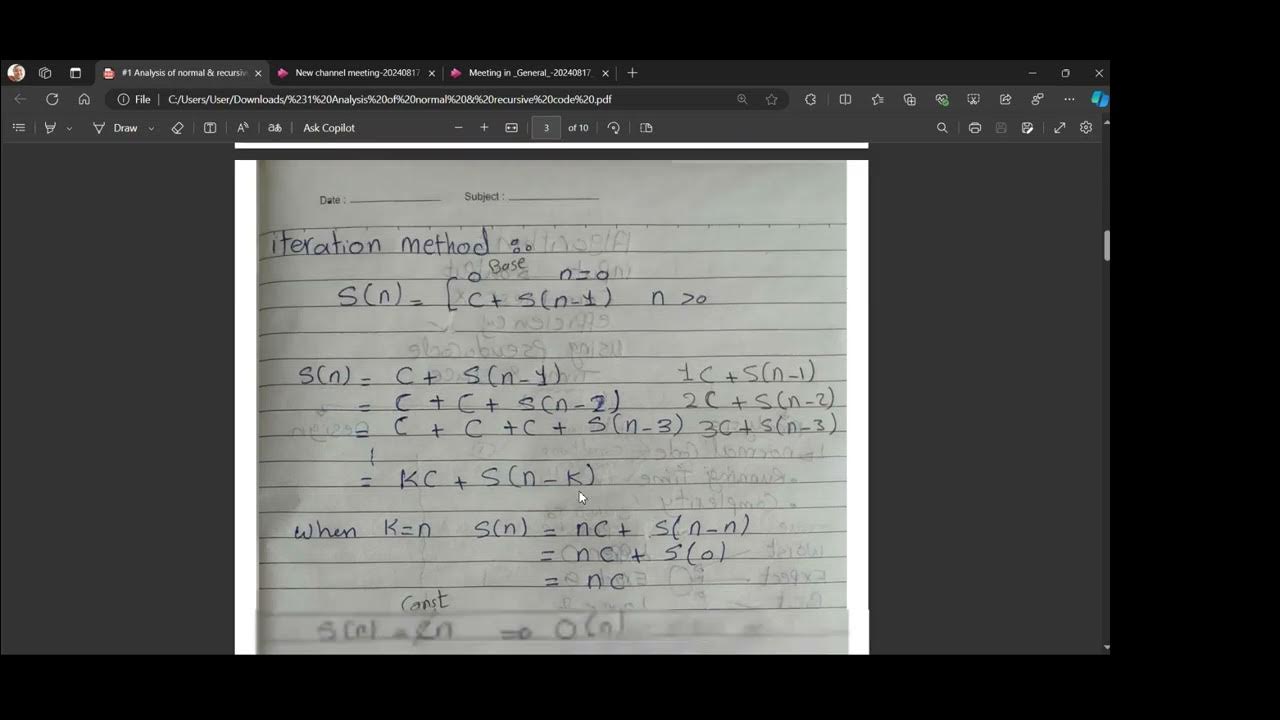 #1 Analysis of normal & recursiv
New channel meeting-20240817
Meeting in _General_-20240817_
File
C:/Users/User/Downloads/%231%20Analysis%20of%20normal%20&%20recursive%20code%20.pdf
Draw
Ask Copilot
3 of 10
Date :
Subject :
iteration method :
0 Base n=0
S(n) = [ C + S(n-1) n >0
S(n) = C + S(n-1) 1C + S(n-1)
= C + C + S(n-2) 2C + S(n-2)
= C + C + C + S(n-3) 3C + S(n-3)
= KC + S(n-K)
When K=n S(n) = nC + S(n-n)
= nC + S(0)
= nC
Const
S(n) = Cn => O(n)